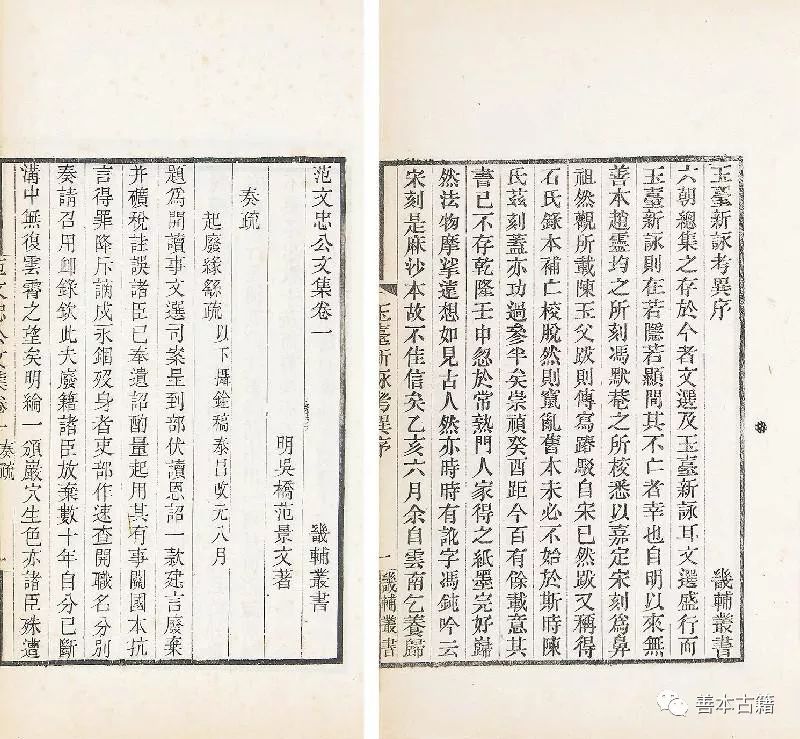 玉臺新詠考異序 畿輔叢書
六朝總集之存於今者文選及玉臺新詠耳文選盛行而
玉臺新詠則在若隱若顯間其不亡者幸也自明以來無
善本趙靈均之所刻馮默菴之所校悉以嘉定宋刻爲鼻
祖然觀所載陳玉父跋則傳寫踳駁自宋已然跋又稱得
石氏錄本補亡校脫然則竄亂舊本未必不始於斯時陳
氏茲刻蓋亦功過參半矣崇禎癸酉距今百有餘載意其
書已不存乾隆壬申忽於常熟門人家得之紙墨完好巋
然法物摩挲遠想如見古人然亦時時有訛字馮鈍吟云
宋刻是麻沙本故不佳信矣乙亥六月余自雲南乞養歸
玉臺新詠考異序 一 畿輔叢書
范文忠公文集卷一 畿輔叢書
明吳橋范景文著
奏疏
起廢緣繇疏 以下攝銓稿泰昌改元八月
題爲開讀事文選司案呈到部伏讀恩詔一款建言廢棄
并礦稅詿誤諸臣已奉遺詔酌量起用其有事關國本抗
言得罪降斥謫戍永錮歿身者吏部作速查開職名分別
奏請召用卹錄欽此大廢籍諸臣放棄數十年自分已斷
溝中無復雲霄之望矣明綸一頒巖穴生色亦諸臣殊遭
范文忠公文集卷一 奏疏 一
善本古籍